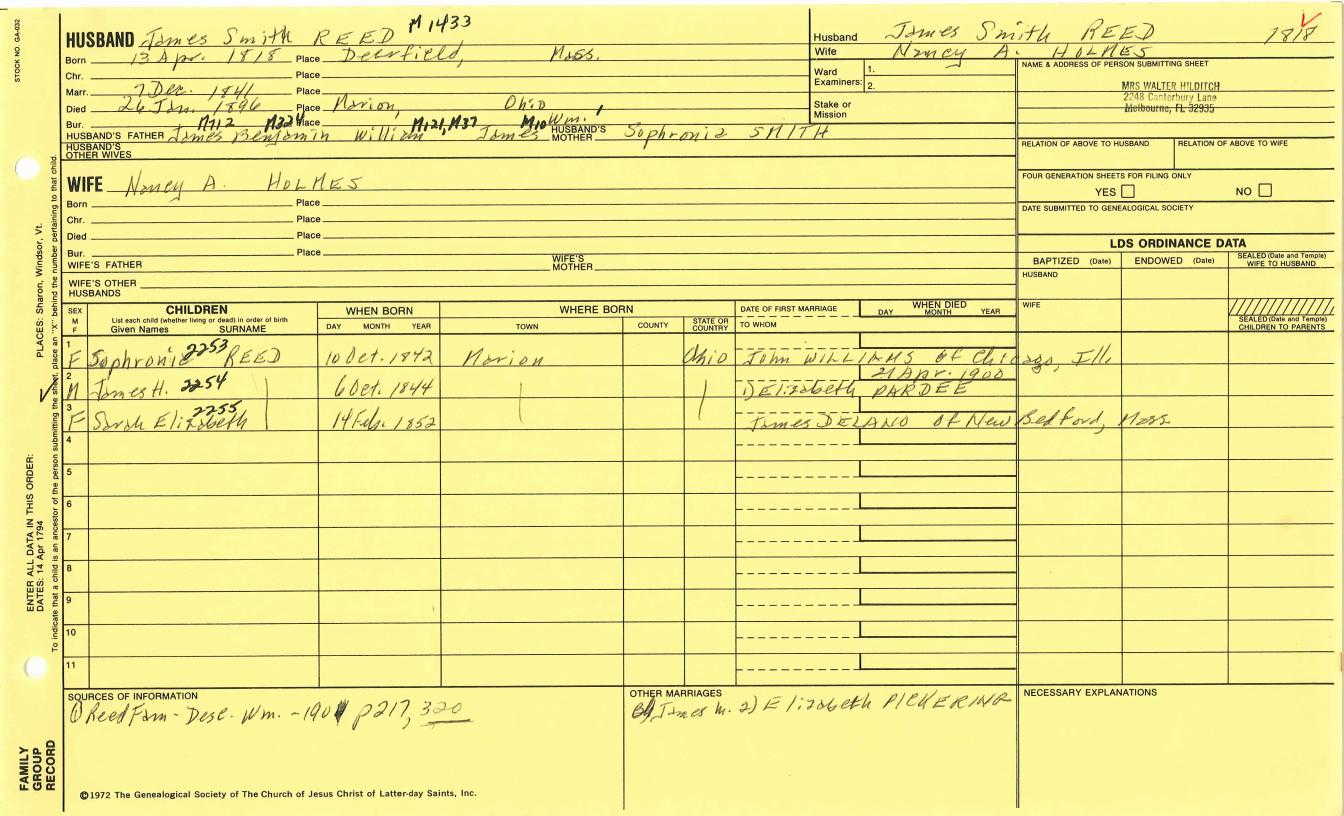 STOCK NO. GA-032
HUSBAND James Smith REED M1433
Born 13 Apr. 1818 Place Deerfield, Mass.
Chr. Place
Marr. 7 Dec. 1841 Place
Died 26 Jan. 1896 Place Marion, Ohio
Bur. Place
M712 M324 M121, M37 M10 Wm. 1
HUSBAND'S FATHER James Benjamin William James HUSBAND'S MOTHER Sophronia SMITH
HUSBAND'S OTHER WIVES
Husband James Smith REED 1818
Wife Nancy A. HOLMES
Ward Examiners: 1.
2.
Stake or Mission
NAME & ADDRESS OF PERSON SUBMITTING SHEET
MRS WALTER HILDITCH
2248 Canterbury Lane
Melbourne, FL 32935
RELATION OF ABOVE TO HUSBAND RELATION OF ABOVE TO WIFE
FOUR GENERATION SHEETS FOR FILING ONLY
YES NO
DATE SUBMITTED TO GENEALOGICAL SOCIETY
WIFE Nancy A. HOLMES
Born Place
Chr. Place
Died Place
Bur. Place
WIFE'S FATHER WIFE'S MOTHER
WIFE'S OTHER HUSBANDS
LDS ORDINANCE DATA
BAPTIZED (Date) ENDOWED (Date) SEALED (Date and Temple) WIFE TO HUSBAND
HUSBAND
WIFE
SEALED (Date and Temple) CHILDREN TO PARENTS
SEX M F CHILDREN WHEN BORN WHERE BORN DATE OF FIRST MARRIAGE WHEN DIED
List each child (whether living or dead) in order of birth
Given Names SURNAME DAY MONTH YEAR TOWN COUNTY STATE OR COUNTRY TO WHOM DAY MONTH YEAR
1 F Sophronia 2253 REED 10 Oct. 1842 Marion Ohio John WILLIAMS of Chicago, Ill.
21 Apr. 1900
2 M James H. 2254 6 Oct. 1844 1) Elizabeth PARDEE
3 F Sarah Elizabeth 2255 14 Feb. 1852 James DELANO of New Bedford, Mass
4
5
6
7
8
9
10
11
SOURCES OF INFORMATION
① Reed Fam - Desc. Wm. - 1901 p217, 320
OTHER MARRIAGES
James m. 2) Elizabeth PICKERING
NECESSARY EXPLANATIONS
©1972 The Genealogical Society of The Church of Jesus Christ of Latter-day Saints, Inc.
FAMILY GROUP RECORD
ENTER ALL DATA IN THIS ORDER:
DATES: 14 Apr 1794 PLACES: Sharon, Windsor, Vt.
To indicate that a child is an ancestor of the person submitting the sheet, place an "X" behind the number pertaining to that child.